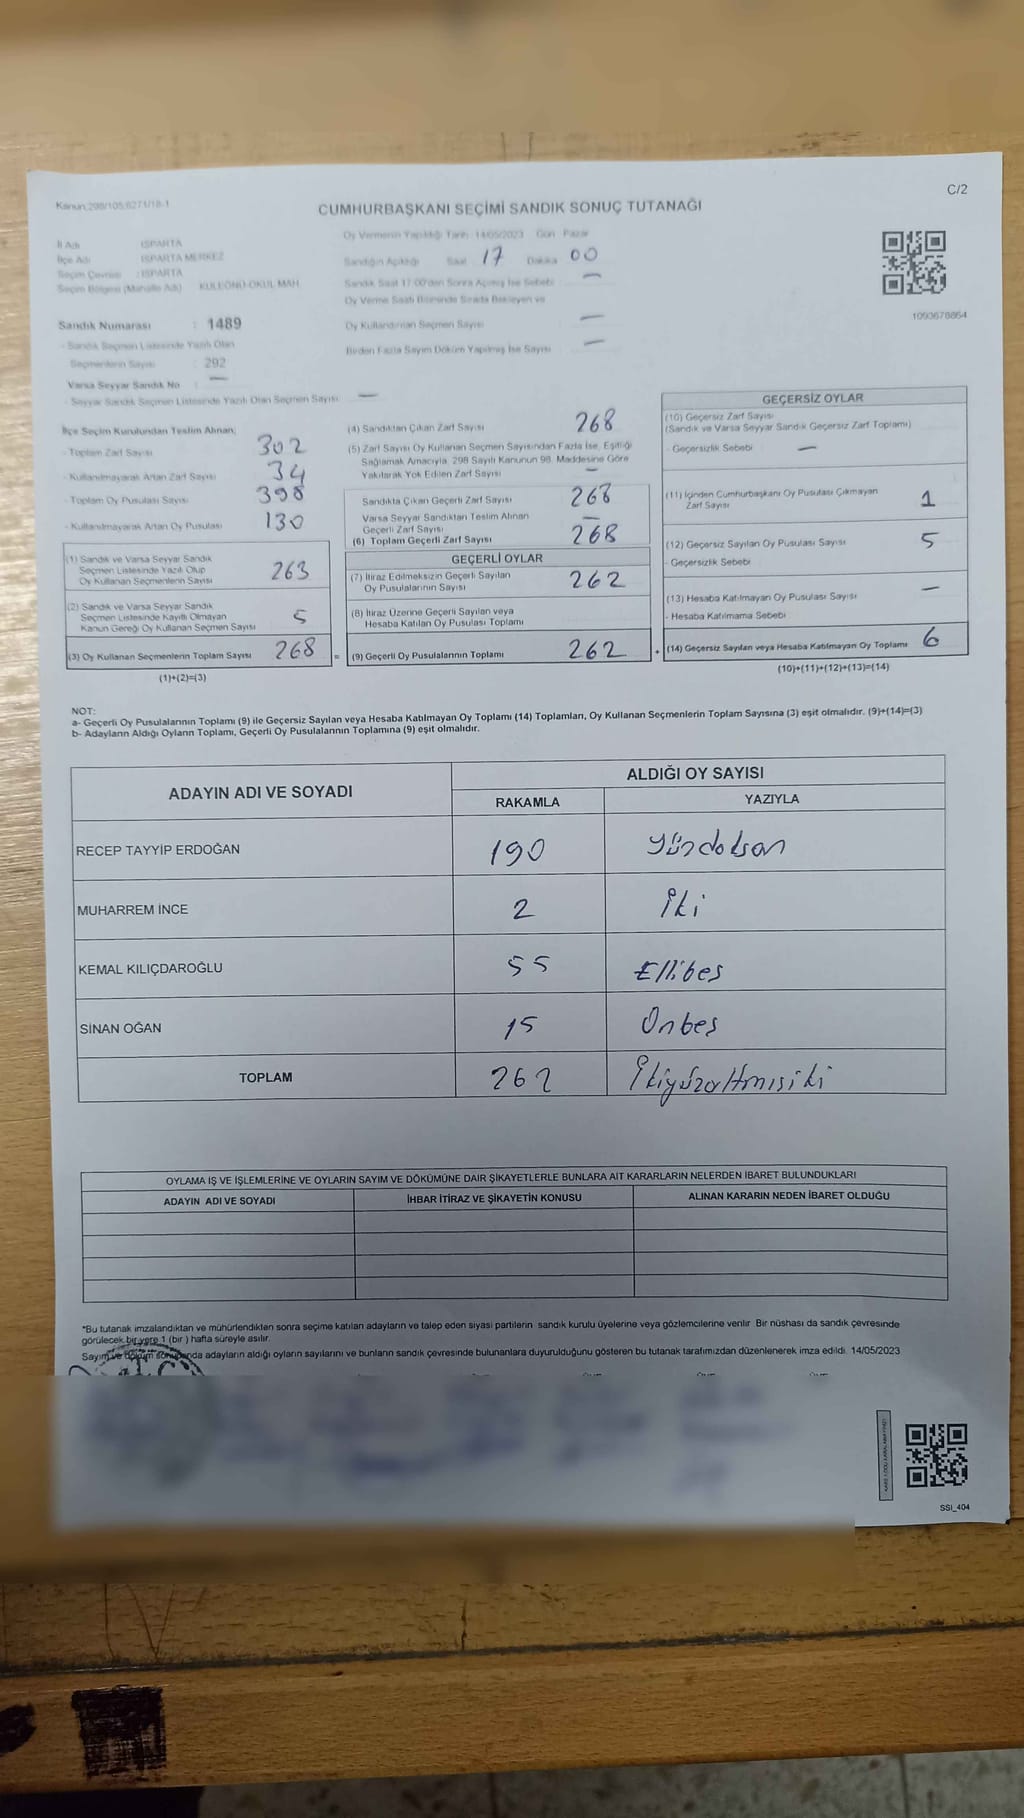 Kanun:298/105;6271/18-1
C/2
CUMHURBAŞKANI SEÇİMİ SANDIK SONUÇ TUTANAĞI
Oy Vermenin Yapıldığı Tarih :14/05/2023 Gün : Pazar
İl Adı : ISPARTA
İlçe Adı : ISPARTA MERKEZ
Seçim Çevresi : ISPARTA
Seçim Bölgesi (Mahalle Adı) : KULEÖNÜ-OKUL MAH.
Sandığın Açıldığı Saat : 17 Dakika : 00
Sandık Saat 17:00'den Sonra Açılmış İse Sebebi : —
Oy Verme Saati Bitiminde Sırada Bekleyen ve
Oy Kullandırılan Seçmen Sayısı —
Birden Fazla Sayım Döküm Yapılmış İse Sayısı —
1093678864
Sandık Numarası : 1489
- Sandık Seçmen Listesinde Yazılı Olan
Seçmenlerin Sayısı : 292
Varsa Seyyar Sandık No : —
- Seyyar Sandık Seçmen Listesinde Yazılı Olan Seçmen Sayısı : —
İlçe Seçim Kurulundan Teslim Alınan;
- Toplam Zarf Sayısı 302
- Kullanılmayarak Artan Zarf Sayısı 34
- Toplam Oy Pusulası Sayısı 398
- Kullanılmayarak Artan Oy Pusulası 130
(1) Sandık ve Varsa Seyyar Sandık
Seçmen Listesinde Yazılı Olup
Oy Kullanan Seçmenlerin Sayısı 263
(2) Sandık ve Varsa Seyyar Sandık
Seçmen Listesinde Kayıtlı Olmayan
Kanun Gereği Oy Kullanan Seçmen Sayısı 5
(3) Oy Kullanan Seçmenlerin Toplam Sayısı 268
(1)+(2)=(3)
(4) Sandıktan Çıkan Zarf Sayısı 268
(5) Zarf Sayısı Oy Kullanan Seçmen Sayısından Fazla İse, Eşitliği
Sağlamak Amacıyla, 298 Sayılı Kanunun 98. Maddesine Göre
Yakılarak Yok Edilen Zarf Sayısı —
Sandıkta Çıkan Geçerli Zarf Sayısı 268
Varsa Seyyar Sandıktan Teslim Alınan
Geçerli Zarf Sayısı —
(6) Toplam Geçerli Zarf Sayısı 268
GEÇERLİ OYLAR
(7) İtiraz Edilmeksizin Geçerli Sayılan
Oy Pusulalarının Sayısı 262
(8) İtiraz Üzerine Geçerli Sayılan veya
Hesaba Katılan Oy Pusulası Toplamı
= (9) Geçerli Oy Pusulalarının Toplamı 262
GEÇERSİZ OYLAR
(10) Geçersiz Zarf Sayısı
(Sandık ve Varsa Seyyar Sandık Geçersiz Zarf Toplamı)
- Geçersizlik Sebebi —
(11) İçinden Cumhurbaşkanı Oy Pusulası Çıkmayan
Zarf Sayısı 1
(12) Geçersiz Sayılan Oy Pusulası Sayısı 5
- Geçersizlik Sebebi
(13) Hesaba Katılmayan Oy Pusulası Sayısı —
- Hesaba Katılmama Sebebi
+ (14) Geçersiz Sayılan veya Hesaba Katılmayan Oy Toplamı 6
(10)+(11)+(12)+(13)=(14)
NOT:
a- Geçerli Oy Pusulalarının Toplamı (9) ile Geçersiz Sayılan veya Hesaba Katılmayan Oy Toplamı (14) Toplamları, Oy Kullanan Seçmenlerin Toplam Sayısına (3) eşit olmalıdır. (9)+(14)=(3)
b- Adayların Aldığı Oyların Toplamı, Geçerli Oy Pusulalarının Toplamına (9) eşit olmalıdır.
ADAYIN ADI VE SOYADI ALDIĞI OY SAYISI
RAKAMLA YAZIYLA
RECEP TAYYİP ERDOĞAN 190 Yüzdoksan
MUHARREM İNCE 2 İki
KEMAL KILIÇDAROĞLU 55 Ellibeş
SİNAN OĞAN 15 Onbeş
TOPLAM 262 İkiyüzaltmışiki
OYLAMA İŞ VE İŞLEMLERİNE VE OYLARIN SAYIM VE DÖKÜMÜNE DAİR ŞİKAYETLERLE BUNLARA AİT KARARLARIN NELERDEN İBARET BULUNDUKLARI
ADAYIN ADI VE SOYADI İHBAR İTİRAZ VE ŞİKAYETİN KONUSU ALINAN KARARIN NEDEN İBARET OLDUĞU
*Bu tutanak imzalandıktan ve mühürlendikten sonra seçime katılan adayların ve talep eden siyasi partilerin sandık kurulu üyelerine veya gözlemcilerine verilir. Bir nüshası da sandık çevresinde
görülecek bir yere 1 (bir ) hafta süreyle asılır.
Sayım ve döküm sonunda adayların aldığı oyların sayılarını ve bunların sandık çevresinde bulunanlara duyurulduğunu gösteren bu tutanak tarafımızdan düzenlenerek imza edildi. 14/05/2023
SSI_404